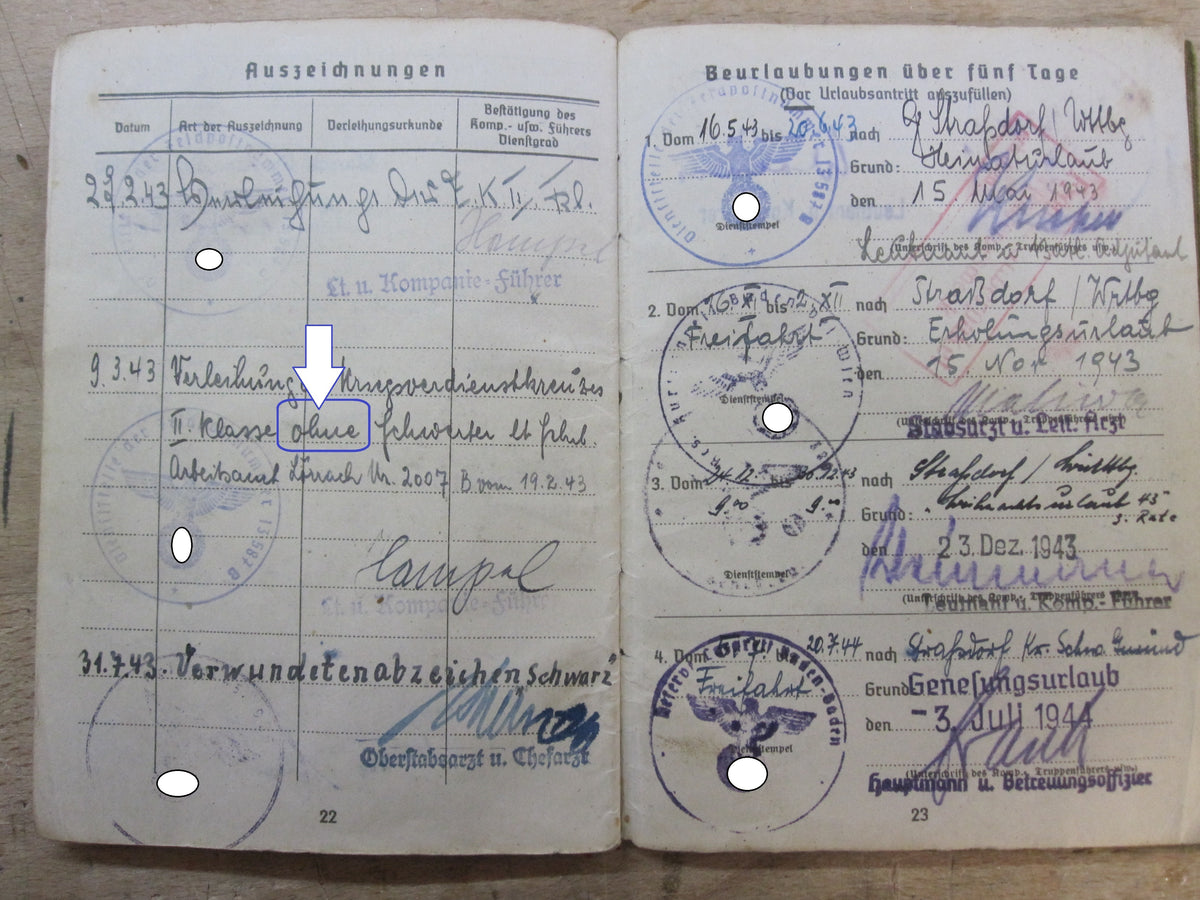 Auszeichnungen
Datum
Art der Auszeichnung
Verleihungsurkunde
Bestätigung des Komp.- usw. Führers Dienstgrad
2.43 Verleihung des E.K. II. Kl.
Hampel
Lt. u. Kompanie-Führer
9.3.43 Verleihung Kriegsverdienstkreuzes
II Klasse ohne Schwerter lt
Arbeitsamt Lörrach Nr. 2007 B vom 19.2.43
Hampel
Lt. u. Kompanie-Führer
31.7.43. Verwundetenabzeichen „Schwarz“
Oberstabsarzt u. Chefarzt
22
Beurlaubungen über fünf Tage
(Vor Urlaubsantritt auszufüllen)
1. Vom 16.5.43 bis 20.6.43 nach Straßdorf / Wttbg
Grund: Heimaturlaub
den 15. Mai 1943
Dienststempel
(Unterschrift des Komp., Truppenführers usw.)
Leutnant u. Adjutant
2. Vom 16. XI bis 2. XII nach Straßdorf / Wrtbg
Freifahrt
Grund: Erholungsurlaub
den 15. Nov 1943
Dienststempel
Stabsarzt u. Leit. Arzt
3. Vom 24.12. bis 30.12.43 nach Straßdorf /
9.00 9.00
Grund:
den 23. Dez. 1943
Dienststempel
Leutnant u. Komp.-Führer
4. Vom bis 20.7.44 nach Straßdorf Kr. Schw. Gmünd
Freifahrt
Grund Genesungsurlaub
den -3. Juli 1944
Dienststempel
(Unterschrift des Komp., Truppenführers usw.)
Hauptmann u. Betreuungsoffizier
23